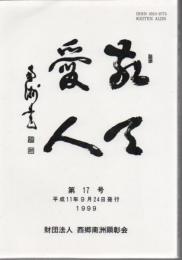 ISSN 0910-0775
KEITEN AIJIN
敬天
愛人
第 17 号
平成11年9月24日発行
1999
財団法人 西郷南洲顕彰会